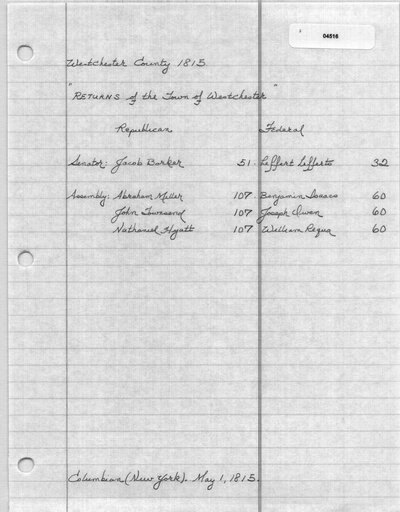 04516
Westchester County 1815
"RETURNS of the Town of Westchester"
Republican Federal
Senator: Jacob Barker 51 Leffert Lefferts 32
Assembly: Abraham Miller 107 Benjamin Isaacs 60
John Townsend 107 Joseph Owen 60
Nathaniel Hyatt 107 William Requa 60
Columbian (New York). May 1, 1815.